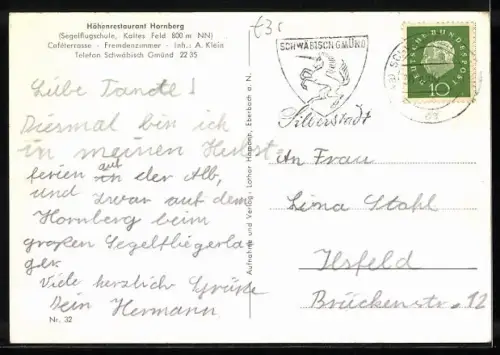 Höhenrestaurant Hornberg
(Segelflugschule, Kaltes Feld 800 m NN)
Caféterrasse - Fremdenzimmer - Inh.: A. Klein
Telefon Schwäbisch Gmünd 22 35
Liebe Tande!
Diesmal bin ich
in meinen Herbst-
ferien auf der Alb,
und zwar auf dem
Hornberg beim
großen Segelfliegerla
ger.
Viele herzlich Grüße
Dein Hermann
Nr. 32
Aufnahme und Verlag: Lothar Hepner, Eberbach a. N.
£35
SCHWÄBISCH GMÜND
Silberstadt
DEUTSCHE BUNDESPOST
10
An Frau
Lina Stahl
Ilsfeld
Brückenstr. 12